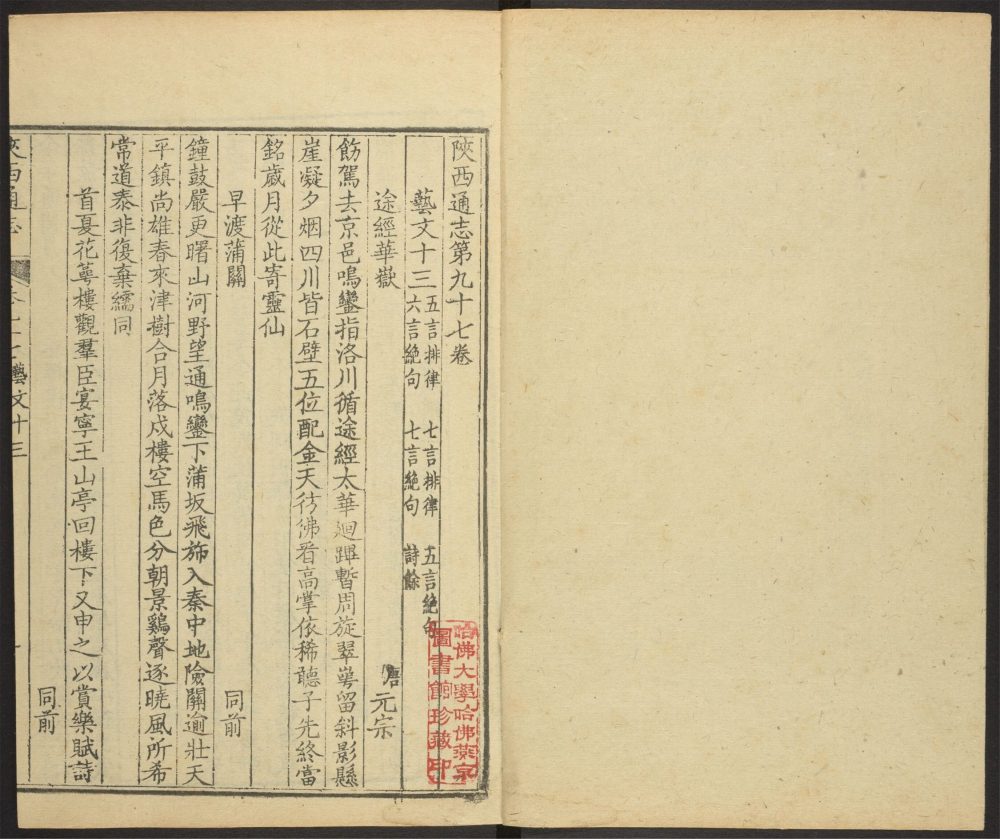 陝西通志第九十七卷
藝文十三 五言排律 七言排律 五言絶句
六言絶句 七言絶句 詩餘
途經華嶽 唐 元宗
飭駕去京邑鳴鑾指洛川循途經太華廻蹕暫周旋翠崿留斜影懸
崖凝夕烟四川皆石壁五位配金天彷彿看高掌依稀聽子先終當
銘歲月從此寄靈仙
早渡蒲關 同前
鐘鼓嚴更曙山河野望通鳴鑾下蒲坂飛斾入秦中地險關逾壯天
平鎮尚雄春來津樹合月落戍樓空馬色分朝景鷄聲逐曉風所希
常道泰非復棄繻同
首夏花萼樓觀羣臣宴寧王山亭回樓下又申之以賞樂賦詩
同前
陝西通志
藝文十三
哈佛大學哈佛燕京
圖書館珍藏印